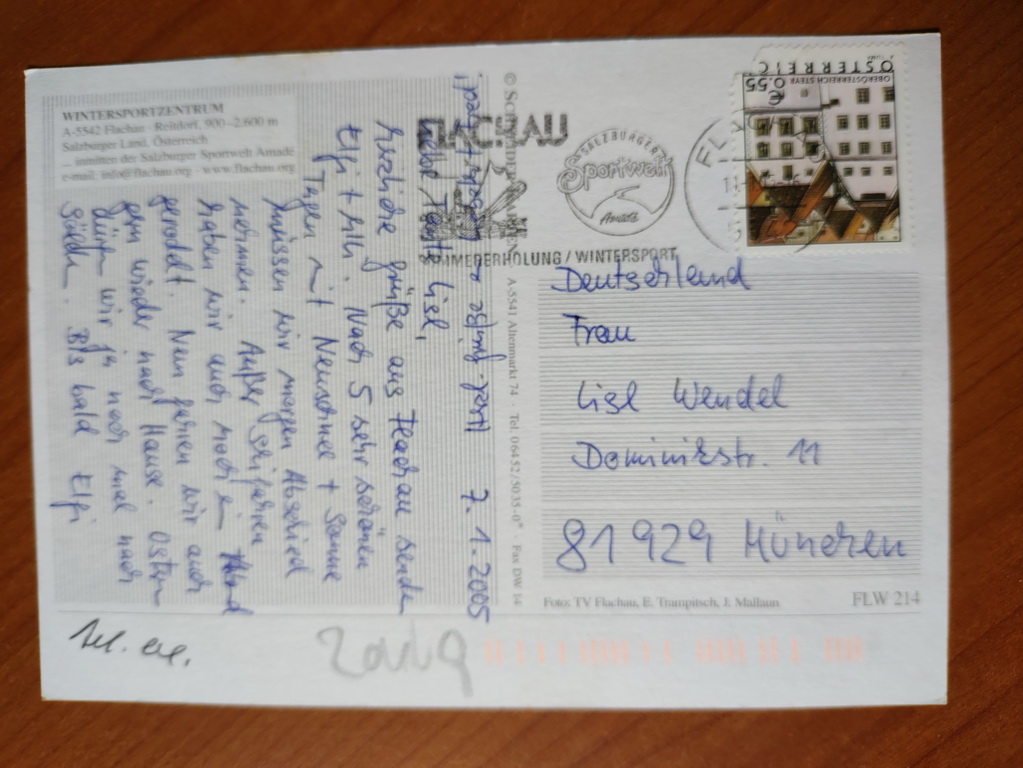 WINTERSPORTZENTRUM
A-5542 Flachau · Reitdorf, 900-2.600 m
Salzburger Land, Österreich
... inmitten der Salzburger Sportwelt Amadé
e-mail: info@flachau.org · www.flachau.org
7.1.2005
Liebe Tante Lisl,
herzliche Grüße aus Flachau sende
Nach 5 sehr schönen
Tagen mit Neuschnee + Sonne
müssen wir morgen Abschied
nehmen. Außer Skifahren
haben wir auch noch ein
gerodelt. Nun fahren wir auch
gern wieder nach Hause. Ostern
dürfen wir ja noch mal nach
Sölden. Bis bald Elfi
FLACHAU
SOMMERERHOLUNG / WINTERSPORT
SALZBURGER
Sportwelt
Amadé
ÖSTERREICH
OBERÖSTERREICH STEYR
€ 0,55
A-5541 Altenmarkt 74 · Tel. 0 64 52 / 50 35-0* · Fax DW 14
Deutschland
Frau
Lisl Wendel
Dominikstr. 11
81929 München
Foto: TV Flachau, E. Trampitsch, J. Mallaun
FLW 214